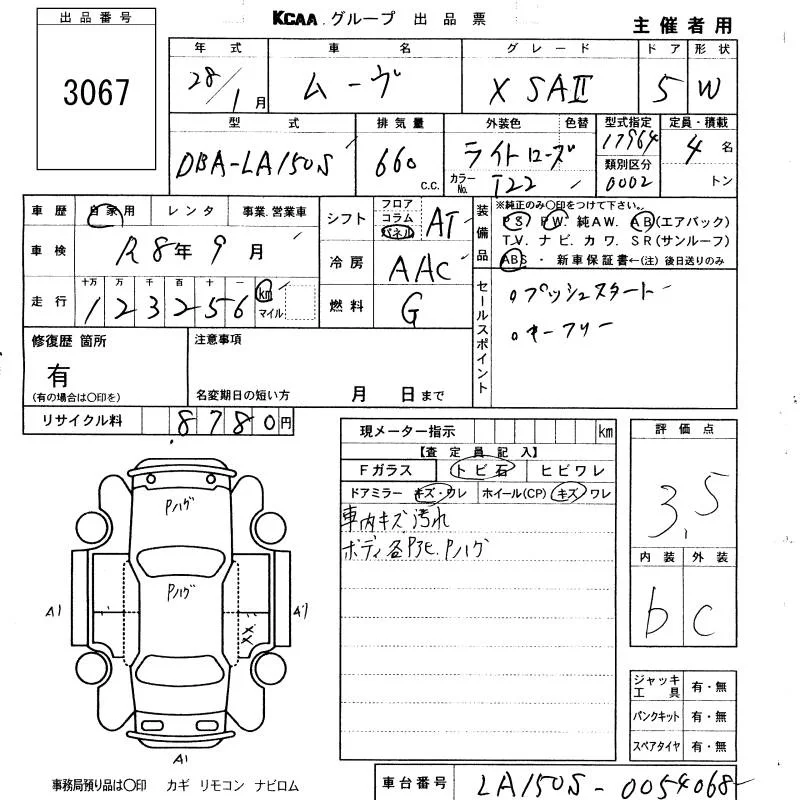 出品番号
3067
KCAA グループ 出品票
主催者用
年式 車名 グレード ドア 形状
28/1月 ムーヴ X SAⅡ 5 W
型式 排気量 外装色 色替 型式指定 定員・積載
DBA-LA150S 660 c.c. ライトローズ 17964 4名
カラーNo. T22 類別区分 0002 トン
車歴 自家用 レンタ 事業.営業車
車検 R8年9月
走行 十万 万 千 百 十 一
123256 km マイル
シフト フロア コラム パネル AT
冷房 AAC
燃料 G
装備品 ※純正のみ〇印をつけて下さい。
PS PW. 純AW. AB(エアバック)
T.V. ナビ. カワ. SR(サンルーフ)
ABS ・ 新車保証書←(注)後日送りのみ
セールスポイント
。プッシュスタート
。キーフリー
修復歴 箇所
有
(有の場合は〇印を)
注意事項
名変期日の短い方 月 日まで
リサイクル料 8780円
現メーター指示 km
【査定員記入】
Fガラス トビ石 ヒビワレ
ドアミラー キズ・ワレ ホイール(CP) キズ ワレ
車内キズ汚れ
ボディ各 Pハゲ
評価点
3.5
内装 外装
b C
Pハゲ
Pハゲ
A1 A1
XX
A1
ジャッキ工具 有・無
パンクキット 有・無
スペアタイヤ 有・無
事務局預り品は〇印 カギ リモコン ナビロム
車台番号 LA150S-0054068